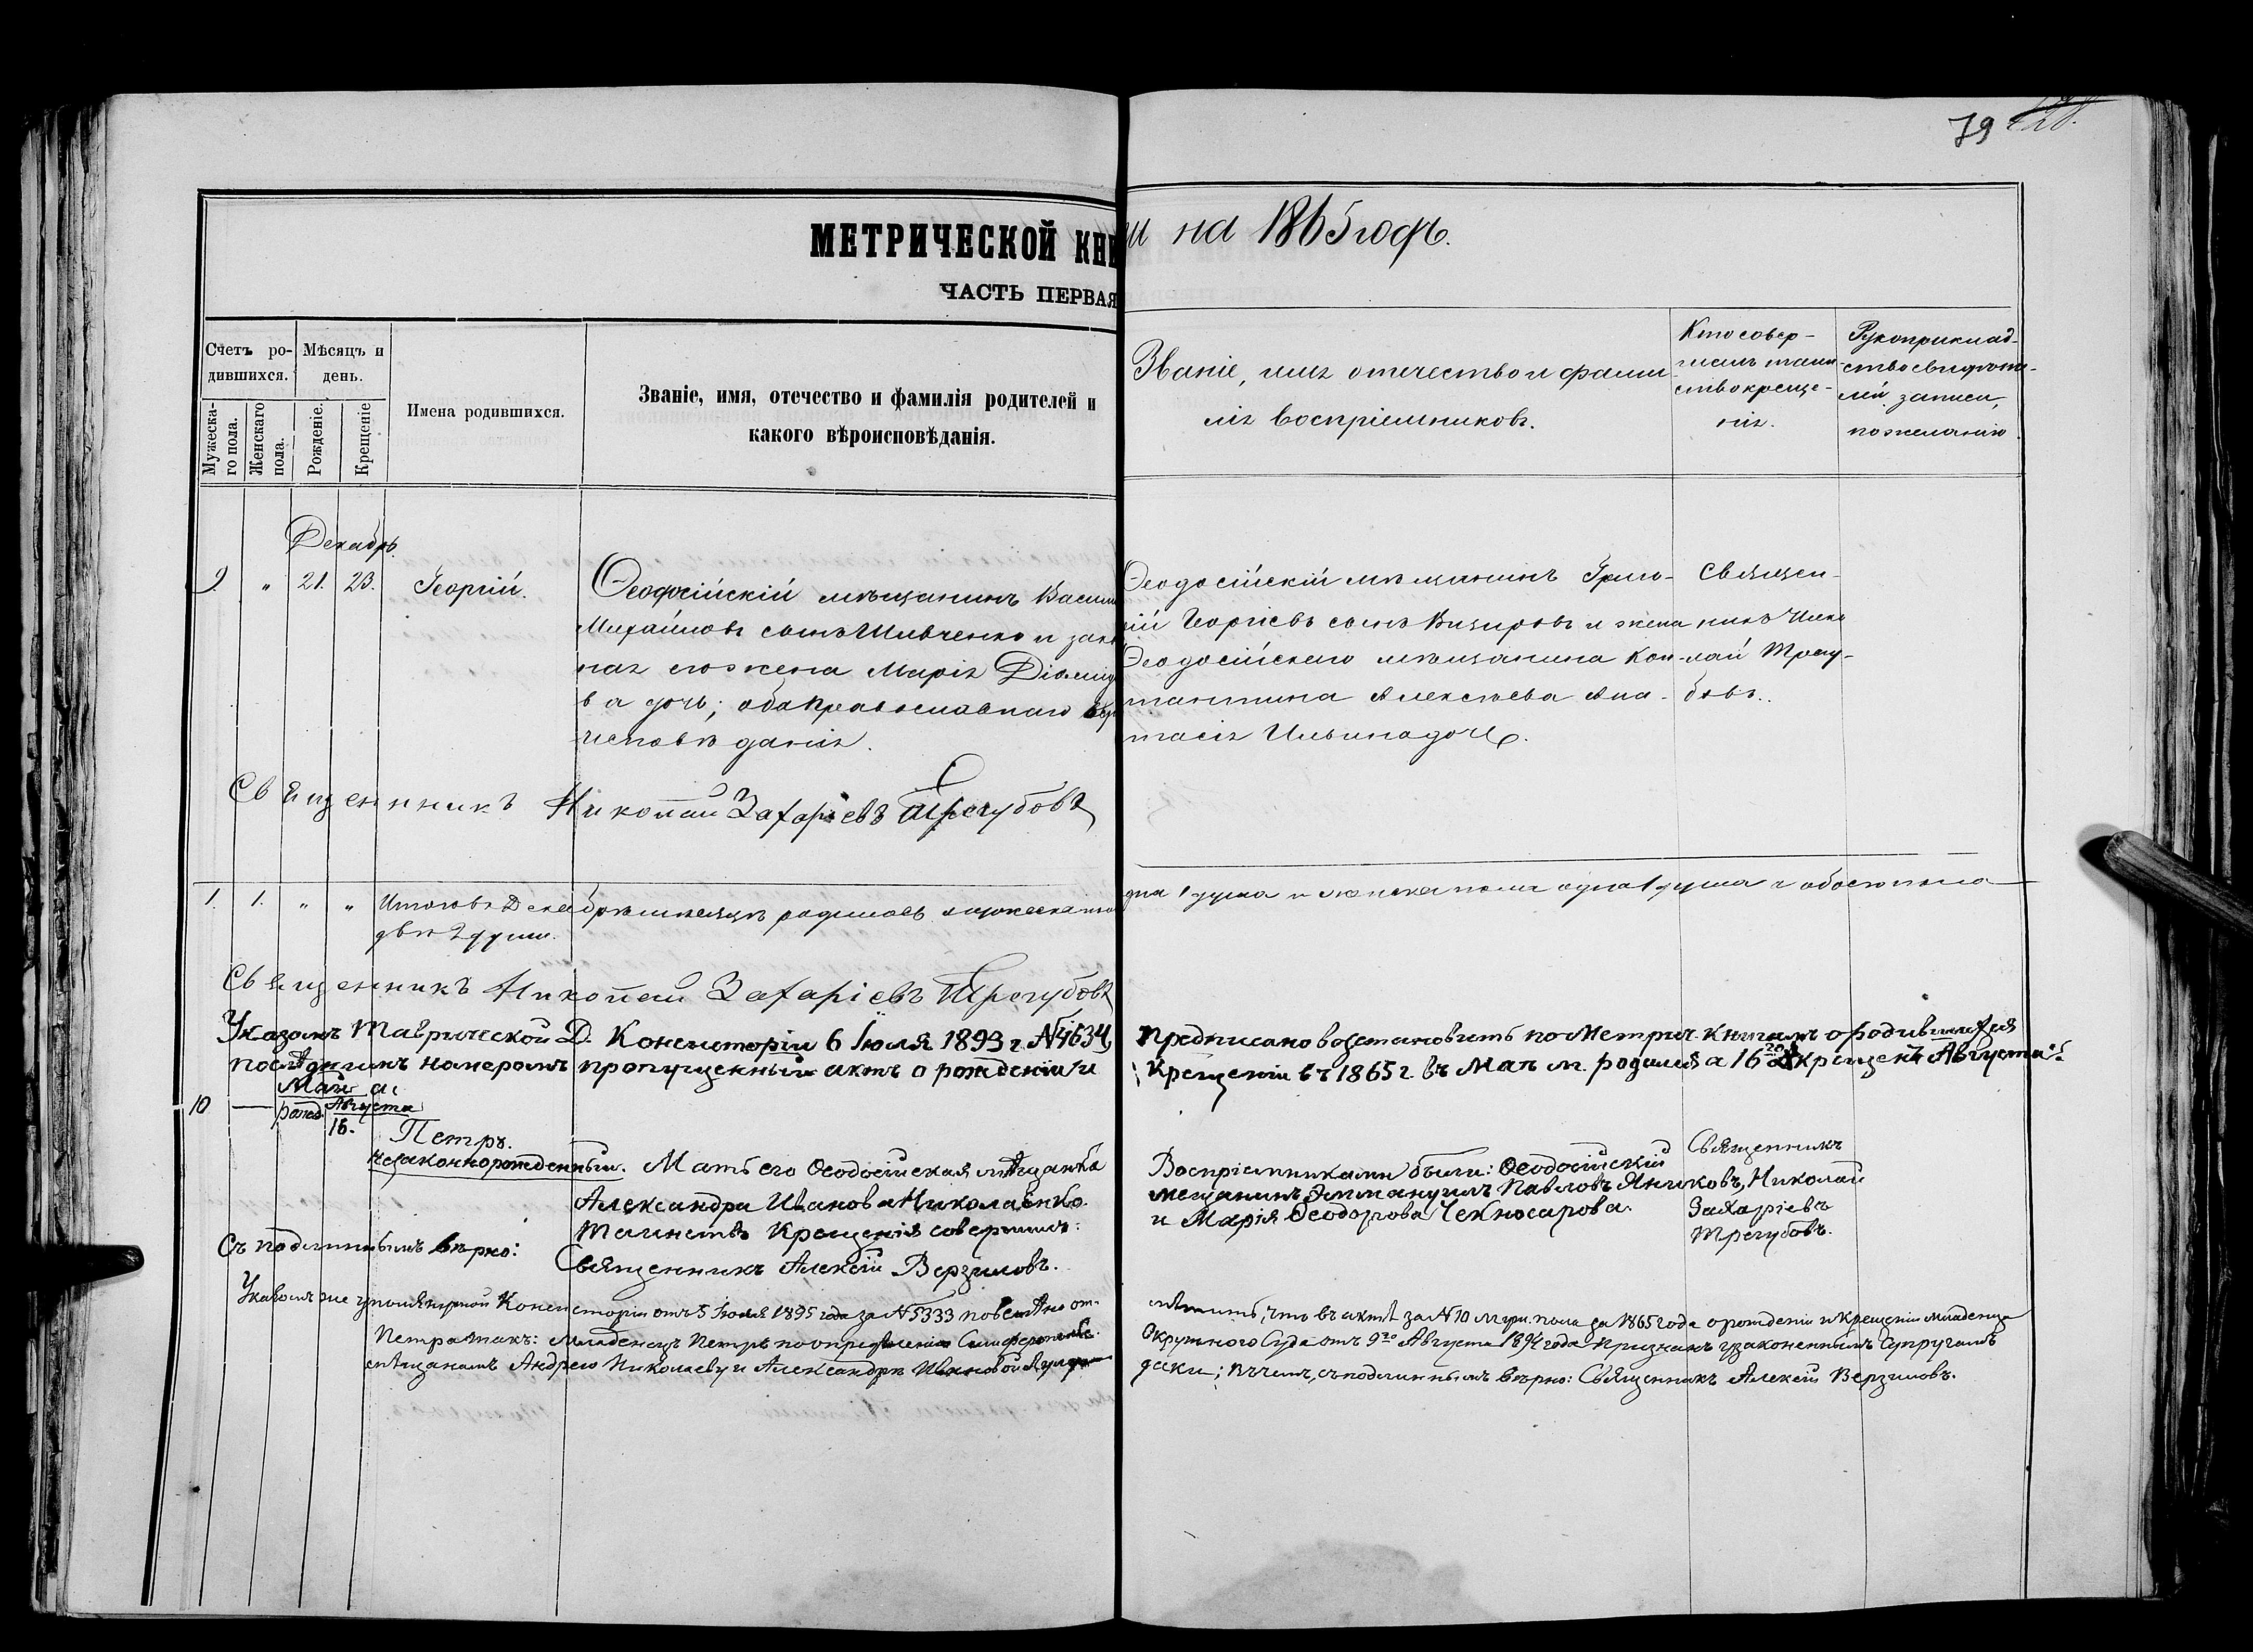 79
МЕТРИЧЕСКОЙ КНИ
и на 1865 годъ.
ЧАСТЬ ПЕРВАЯ
Счетъ ро-
дившихся.
Мужеска-
го пола.
Женскаго
пола.
Мѣсяцъ и
день.
Рожденіе.
Крещеніе
Имена родившихся.
Званіе, имя, отечество и фамилія родителей и
какого вѣроисповѣданія.
Званіе, имя отечество и фами
лія воспріемниковъ.
Кто совер-
шилъ таин
ство креще-
нія.
Рукоприклад-
ство свидѣте-
лей записи,
по желанію
Декабрь.
9. " 21. 23. Георгій.
Ѳеодосійскій мѣщанинъ Васил
Михайловъ сынъ Шивченко и зако
ная его жена Марія Діомид
ва дочь; оба православнаго вѣр
исповѣданія.
Ѳеодосійскій мѣщанинъ Григо-
рій Георгіевъ сынъ Визировъ и жена
Ѳеодосійскаго мѣщанина Кон-
стантина Алексѣева Ана-
тасія Ильина дочь.
Священ-
никъ Нико
лай Трегу-
бовъ.
Священникъ Николай Захаріевъ Трегубовъ
1. 1. " " Итого въ Декабрѣ мѣсяцѣ родилось мужеска по
дна 1 душа и женска пола одна 1 душа а обоего пола
двѣ 2 души.
Священникъ Николай Захаріевъ Трегубовъ
Указомъ Таврической Д. Консисторіи 6 Іюля 1893 г. № 4634,
Предписано возстановить по Метрич. книгамъ о родившихся
послѣднимъ номеромъ пропущенный актъ о рожденіи и
крещеніи въ 1865 г. въ Маѣ м. родился а 16 крещенъ Августа.
Май
10 — рожд. Августа
16.
Петръ.
незаконнорожденный.
Мать его Ѳеодосійская мѣщанка
Александра Иванова Николаенко.
Таинство Крещенія совершилъ:
Воспріемниками были: Ѳеодосійскій
мещанинъ Эммануилъ Павловъ Яниковъ,
и Марія Ѳеодорова Чекносарова.
Священникъ
Николай
Захаріевъ
Трегубовъ.
Съ подлиннымъ вѣрно: Священникъ Алексій Верзиловъ.
Указомъ же упомянутой Консисторіи отъ 5 Іюля 1895 года за № 5333 повелѣно от-
мѣтить, что въ актѣ за № 10 муж. пола за 1865 года о рожденіи и крещеніи младенца
Петра такъ: младенецъ Петръ по опредѣленію Симферопольс.
Окружного Суда отъ 9го Августа 1894 года признанъ узаконеннымъ супругамъ
мѣщанамъ Андрею Николаеву и Александрѣ Ивановой
въ чемъ, съ подлиннымъ вѣрно: Священникъ Алексій Верзиловъ.